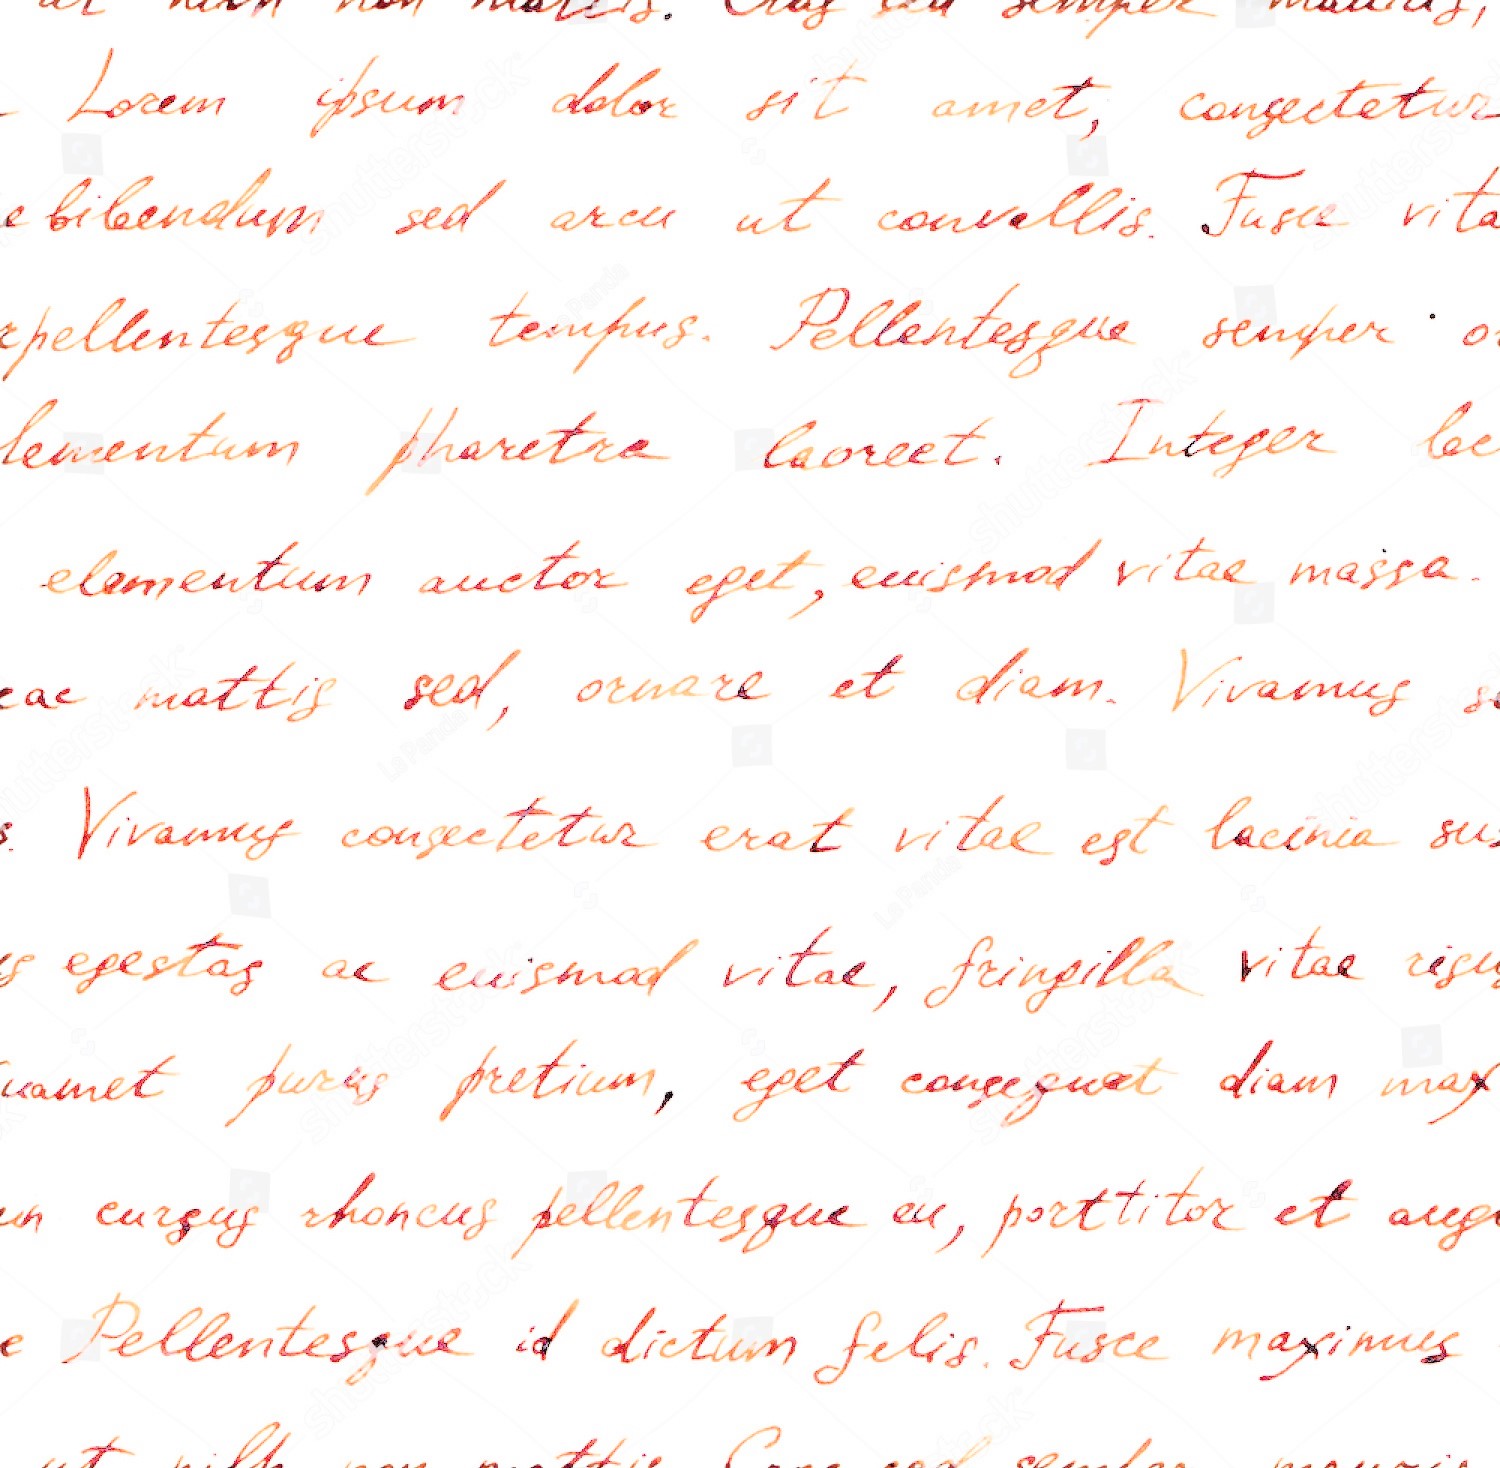 non mattis. Cras sed semper mauris,
Lorem ipsum dolor sit amet, consectetur
e bibendum sed arcu ut convallis. Fusce vita
pellentesque tempus. Pellentesque semper or
lementum pharetra laoreet. Integer lac
elementum auctor eget, euismod vitae massa.
ac mattis sed, ornare et diam. Vivamus se
s. Vivamus consectetur erat vitae est lacinia sus
us egestas ac euismod vitae, fringilla vitae risus
amet purus pretium, eget consequat diam max
cursus rhoncus pellentesque eu, porttitor et augu
e Pellentesque id dictum felis. Fusce maximus
ut nibh non mattis. Cras sed semper mauris